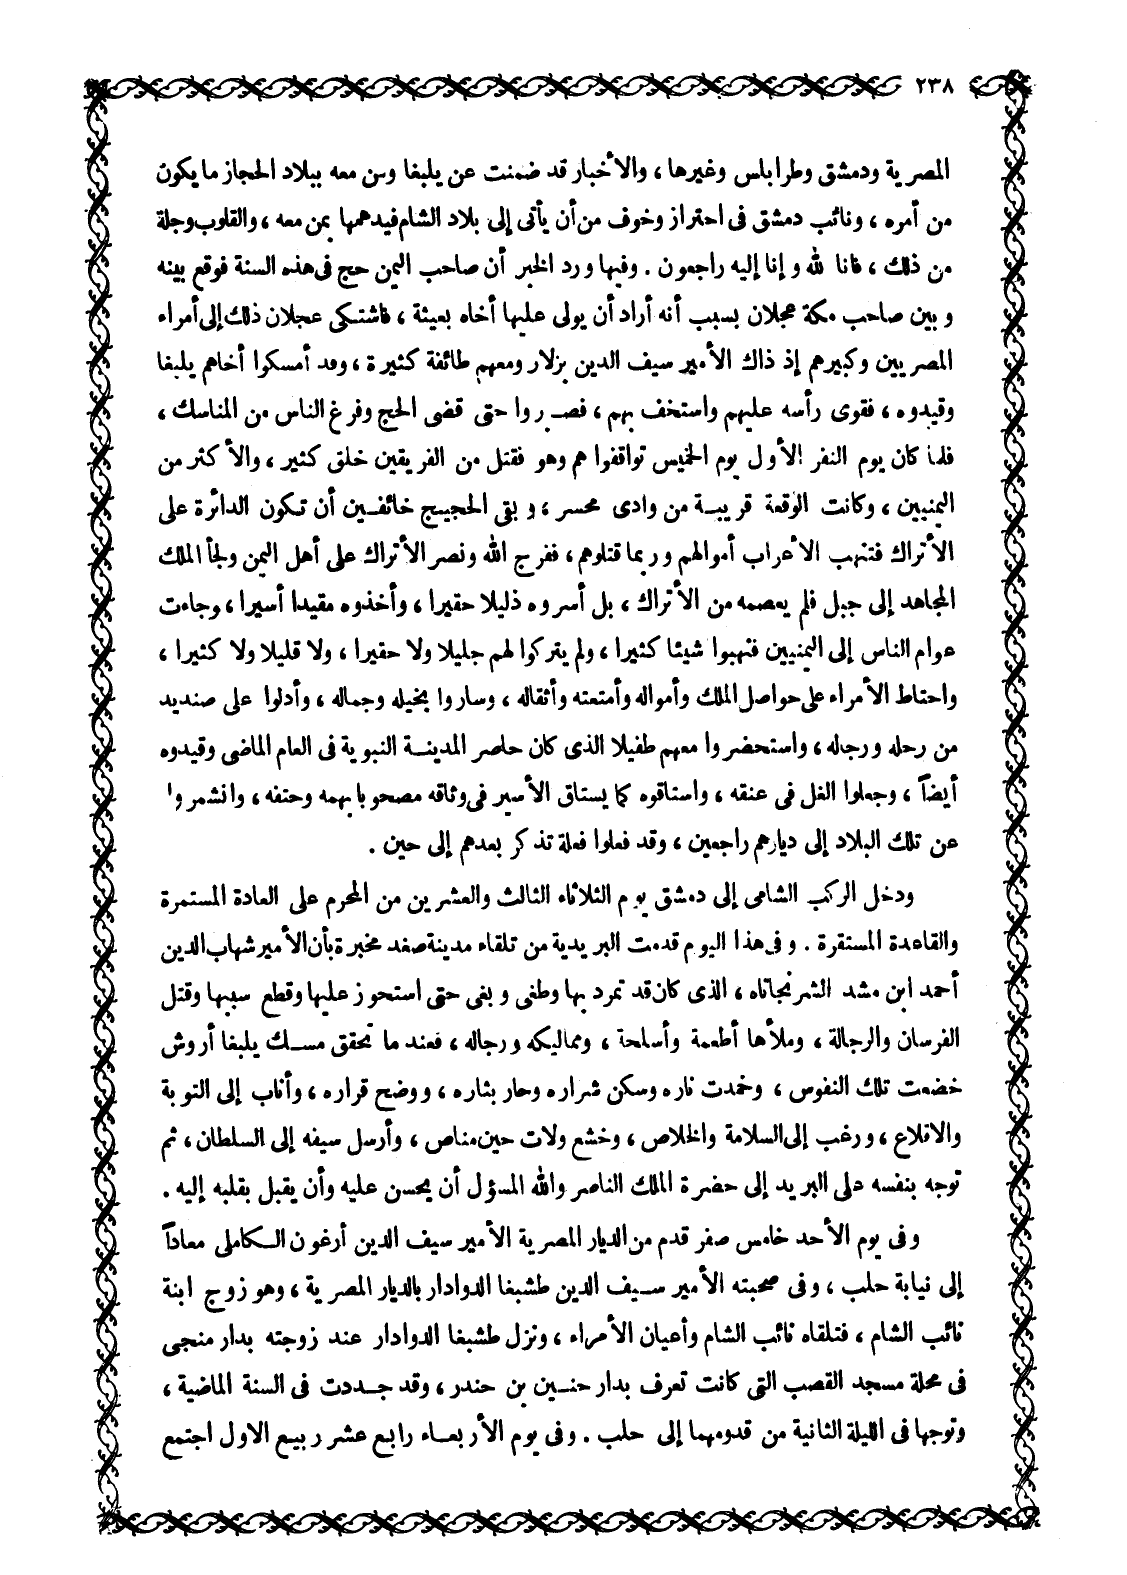 ٢٣٨
المصرية ودمشق وطرابلس وغيرها ، والأخبار قد ضمنت عن يلبغا ومن معه ببلاد الحجاز ما يكون
من أمره ، ونائب دمشق فى احتراز وخوف من أن يأتى إلى بلاد الشام فيدهمها بمن معه ، والقلوب وجلة
من ذلك ، فانا لله و إنا إليه راجعون . وفيها ورد الخبر أن صاحب اليمن حج فى هذه السنة فوقع بينه
و بين صاحب مكة عجلان بسبب أنه أراد أن يولى عليها أخاه بعيثة ، فاشتكى عجلان ذلك إلى أمراء
المصريين وكبيرهم إذ ذاك الأمير سيف الدين بزلار ومعهم طائفة كثيرة ، وقد أمسكوا أخاهم يلبغا
وقيدوه ، فقوى رأسه عليهم واستخف بهم ، فصبروا حتى قضى الحج وفرغ الناس من المناسك ،
فلما كان يوم النفر الأول يوم الخميس تواقفوا هم وهو فقتل من الفريقين خلق كثير ، والأكثر من
اليمنيين ، وكانت الوقعة قريبة من وادى محسر ، و بقى الحجيج خائفين أن تكون الدائرة على
الأتراك فتنهب الأعراب أموالهم وربما قتلوهم ، ففرج الله ونصر الأتراك على أهل اليمن ولجأ الملك
المجاهد إلى جبل فلم يعصمه من الأتراك ، بل أسروه ذليلا حقيرا ، وأخذوه مقيدا أسيرا ، وجاءت
عوام الناس إلى اليمنيين فنهبوا شيئا كثيرا ، ولم يتركوا لهم جليلا ولا حقيرا ، ولا قليلا ولا كثيرا ،
واحتاط الأمراء على حواصل الملك وأمواله وأمتعته وأثقاله ، وساروا بخيله وجماله ، وأدلوا على صنديد
من رحله ورجاله ، واستحضروا معهم طفيلا الذى كان حاصر المدينة النبوية فى العام الماضى وقيدوه
أيضاً ، وجعلوا الغل فى عنقه ، واستاقوه كما يستاق الأسير فى وثاقه مصحوبا بهمه وحتفه ، وانشمروا
عن تلك البلاد إلى ديارهم راجعين ، وقد فعلوا فعلة تذكر بعدهم إلى حين .
ودخل الركب الشامى إلى دمشق يوم الثلاثاء الثالث والعشرين من المحرم على العادة المستمرة
والقاعدة المستقرة . وفى هذا اليوم قدمت البريدية من تلقاء مدينة صفد مخبرة بأن الأمير شهاب الدين
أحمد ابن مشد الشرنجاناه ، الذى كان قد تمرد بها وطغى و بغى حتى استحوز عليها وقطع سببها وقتل
الفرسان والرجالة ، وملأها أطعمة وأسلحة ، ومماليكه ورجاله ، فعند ما تحقق مسك يلبغا أروش
خضعت تلك النفوس ، وخمدت ناره وسكن شراره وحار بثاره ، ووضح قراره ، وأناب إلى التوبة
والاقلاع ، ورغب إلى السلامة والخلاص ، وخشع ولات حين مناص ، وأرسل سيفه إلى السلطان ، ثم
توجه بنفسه على البريد إلى حضرة الملك الناصر والله المسؤل أن يحسن عليه وأن يقبل بقلبه إليه .
وفى يوم الأحد خامس صفر قدم من الديار المصرية الأمير سيف الدين أرغون الكاملى معاداً
إلى نيابة حلب ، وفى صحبته الأمير سيف الدين طشبغا الدوادار بالديار المصرية ، وهو زوج ابنة
نائب الشام ، فتلقاه نائب الشام وأعيان الأمراء ، ونزل طشبغا الدوادار عند زوجته بدار منجى
فى محلة مسجد القصب التى كانت تعرف بدار حنين بن حندر ، وقد جددت فى السنة الماضية ،
وتوجها فى الليلة الثانية من قدومهما إلى حلب . وفى يوم الأربعاء رابع عشر ربيع الاول اجتمع